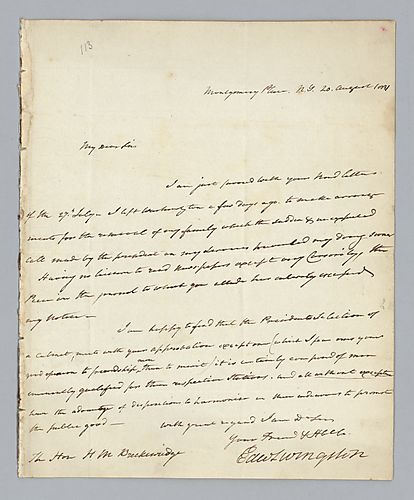 113
Montgomery Place. N.Y. 20. August 1831
My Dear Sir
I am just favored with your kind letter
of the 27. July. I left Washington a few days ago to make arrange
ments for the removal of my family which the sudden & unexpected
call made by the president on my Services prevented my doing some
Having no leisure to read Newspapers except very Cursorily, the
Piece in the journal to which you allude has entirely escaped
my Notice—
I am happy to find that the Presidents Selection of
a cabinet, meets with your approbation except one (which I fear owes your
good opinion to friendship, more than to merit) it is certainly composed of men
eminently qualified for their respective Stations, and all without exception
have the advantage of dispositions to harmonise in their endeavours to promote
the public good—
with great regard I am Dr Sir
Your Friend & H Sr
Edw Livingston
The Hon H M